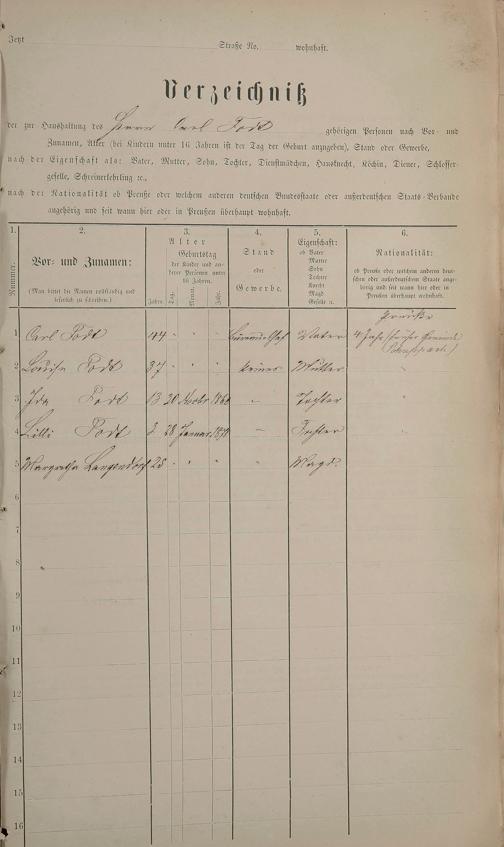 Jetzt Straße No. wohnhaft.
Verzeichniß
der zur Haushaltung des Herrn Carl Todt gehörigen Personen nach Vor- und
Zunamen, Alter (bei Kindern unter 16 Jahren ist der Tag der Geburt anzugeben), Stand oder Gewerbe,
nach der Eigenschaft als: Vater, Mutter, Sohn, Tochter, Dienstmädchen, Hausknecht, Köchin, Diener, Schlosser-
geselle, Schreinerlehrling ec.,
nach der Nationalität ob Preuße oder welchem anderen deutschen Bundesstaate oder außerdeutschen Staats-Verbande
angehörig und seit wann hier oder in Preußen überhaupt wohnhaft.
1. 2. 3. 4. 5. 6.
Nummer.
Vor- und Zunamen:
(Man bittet die Namen vollständig und
leserlich zu schreiben.)
Alter
Geburtstag
der Kinder und an-
derer Personen unter
16 Jahren.
Jahre. Tag. Monat. Jahr.
Stand
oder
Gewerbe.
Eigenschaft:
ob Vater
Mutter
Sohn
Tochter
Knecht
Magd
Geselle u.
Nationalität:
ob Preuße oder welchem anderen deut-
schen oder außerdeutschen Staate ange-
hörig und seit wann hier oder in
Preußen überhaupt wohnhaft.
Preuße
1 Carl Todt 44 Vater 4 Jahr
2 Louise Todt 37 keines Mutter
3 Ida Todt 13 20 Novbr. Tochter
4 Lilli Todt 2 28 Januar. 1871 Tochter
5 Margretha Langendorf 25 Magd.
6
7
8
9
10
11
12
13
14
15
16